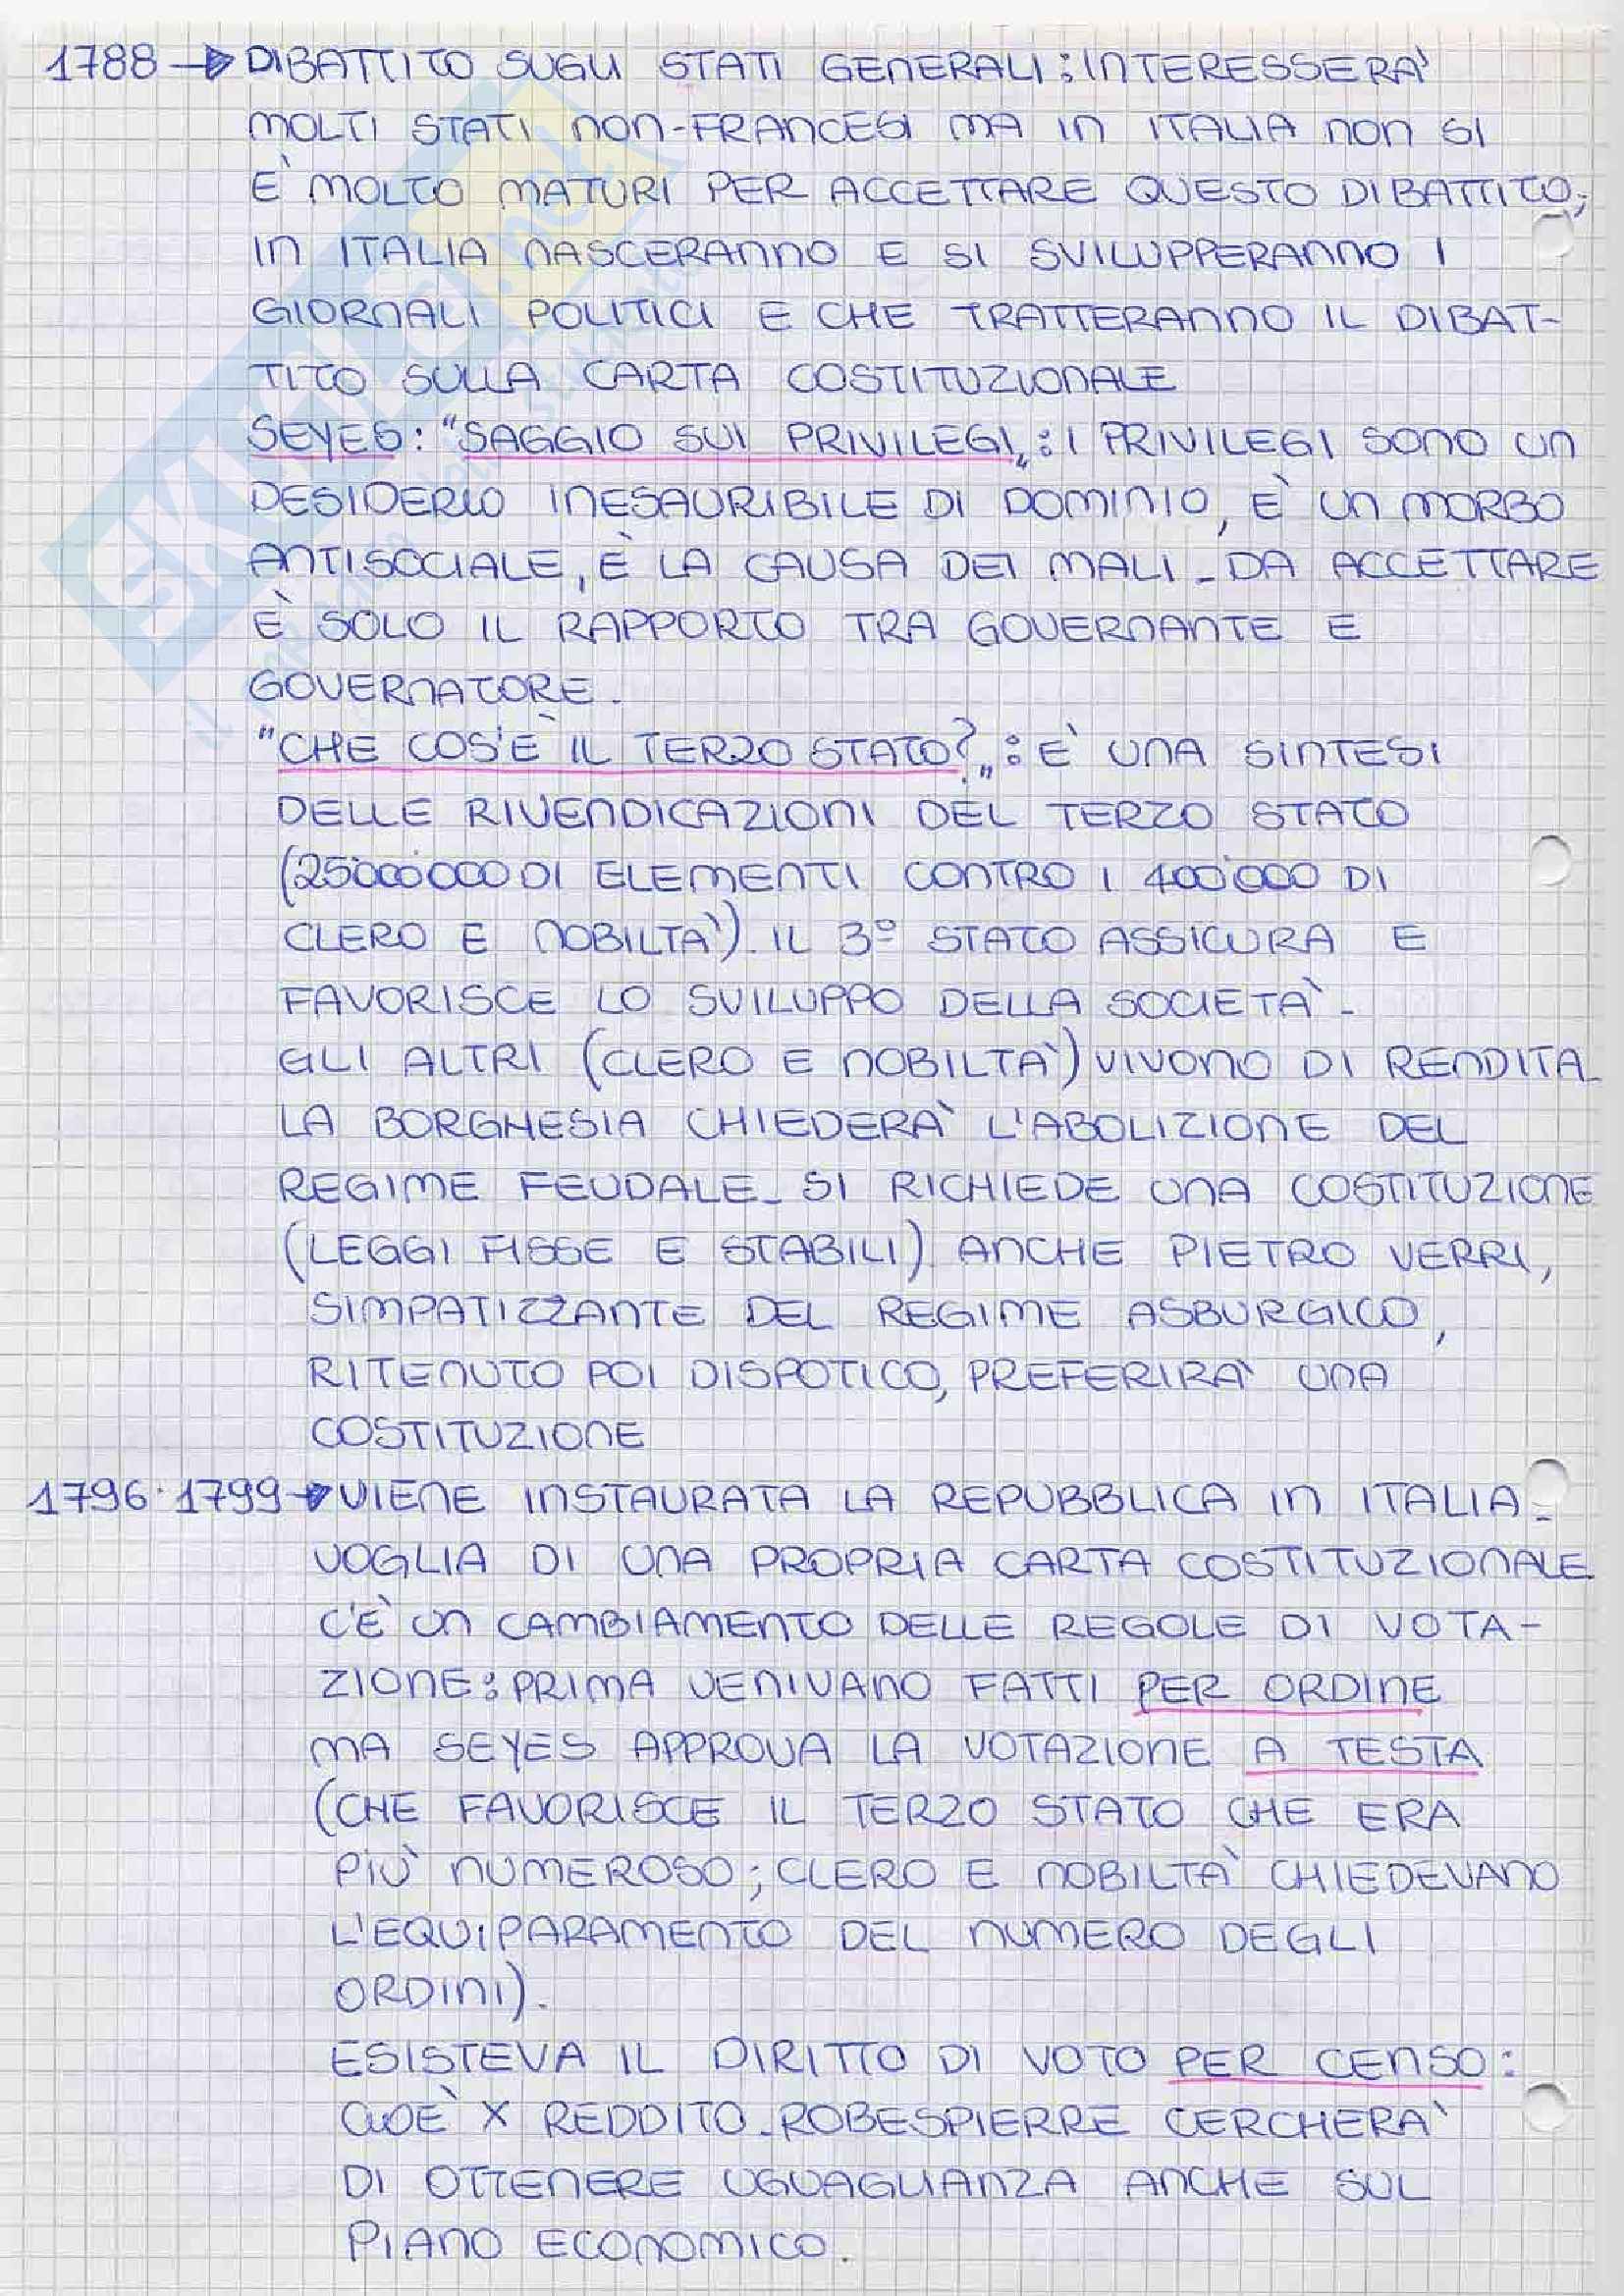 1788 → DIBATTITO SUGLI STATI GENERALI: INTERESSERA'
MOLTI STATI NON-FRANCESI MA IN ITALIA NON SI
E' MOLTO MATURI PER ACCETTARE QUESTO DIBATTITO;
IN ITALIA NASCERANNO E SI SVILUPPERANNO I
GIORNALI POLITICI E CHE TRATTERANNO IL DIBAT-
TITO SULLA CARTA COSTITUZIONALE
SEYES: "SAGGIO SUI PRIVILEGI„: I PRIVILEGI SONO UN
DESIDERIO INESAURIBILE DI DOMINIO, E' UN MORBO
ANTISOCIALE, È LA CAUSA DEI MALI - DA ACCETTARE
È SOLO IL RAPPORTO TRA GOVERNANTE E
GOVERNATORE.
"CHE COS'È IL TERZO STATO?„: E' UNA SINTESI
DELLE RIVENDICAZIONI DEL TERZO STATO
(25'000'000 DI ELEMENTI CONTRO I 400'000 DI
CLERO E NOBILTA'). IL 3º STATO ASSICURA E
FAVORISCE LO SVILUPPO DELLA SOCIETA' -
GLI ALTRI (CLERO E NOBILTA') VIVONO DI RENDITA -
LA BORGHESIA CHIEDERA' L'ABOLIZIONE DEL
REGIME FEUDALE - SI RICHIEDE UNA COSTITUZIONE
(LEGGI FISSE E STABILI) ANCHE PIETRO VERRI,
SIMPATIZZANTE DEL REGIME ASBURGICO,
RITENUTO POI DISPOTICO, PREFERIRA' UNA
COSTITUZIONE
1796-1799 → VIENE INSTAURATA LA REPUBBLICA IN ITALIA -
VOGLIA DI UNA PROPRIA CARTA COSTITUZIONALE
C'È UN CAMBIAMENTO DELLE REGOLE DI VOTA-
ZIONE: PRIMA VENIVANO FATTI PER ORDINE
MA SEYES APPROVA LA VOTAZIONE A TESTA
(CHE FAVORISCE IL TERZO STATO CHE ERA
PIU' NUMEROSO; CLERO E NOBILTA' CHIEDEVANO
L'EQUIPARAMENTO DEL NUMERO DEGLI
ORDINI).
ESISTEVA IL DIRITTO DI VOTO PER CENSO:
CIOE' X REDDITO - ROBESPIERRE CERCHERA'
DI OTTENERE UGUAGLIANZA ANCHE SUL
PIANO ECONOMICO.